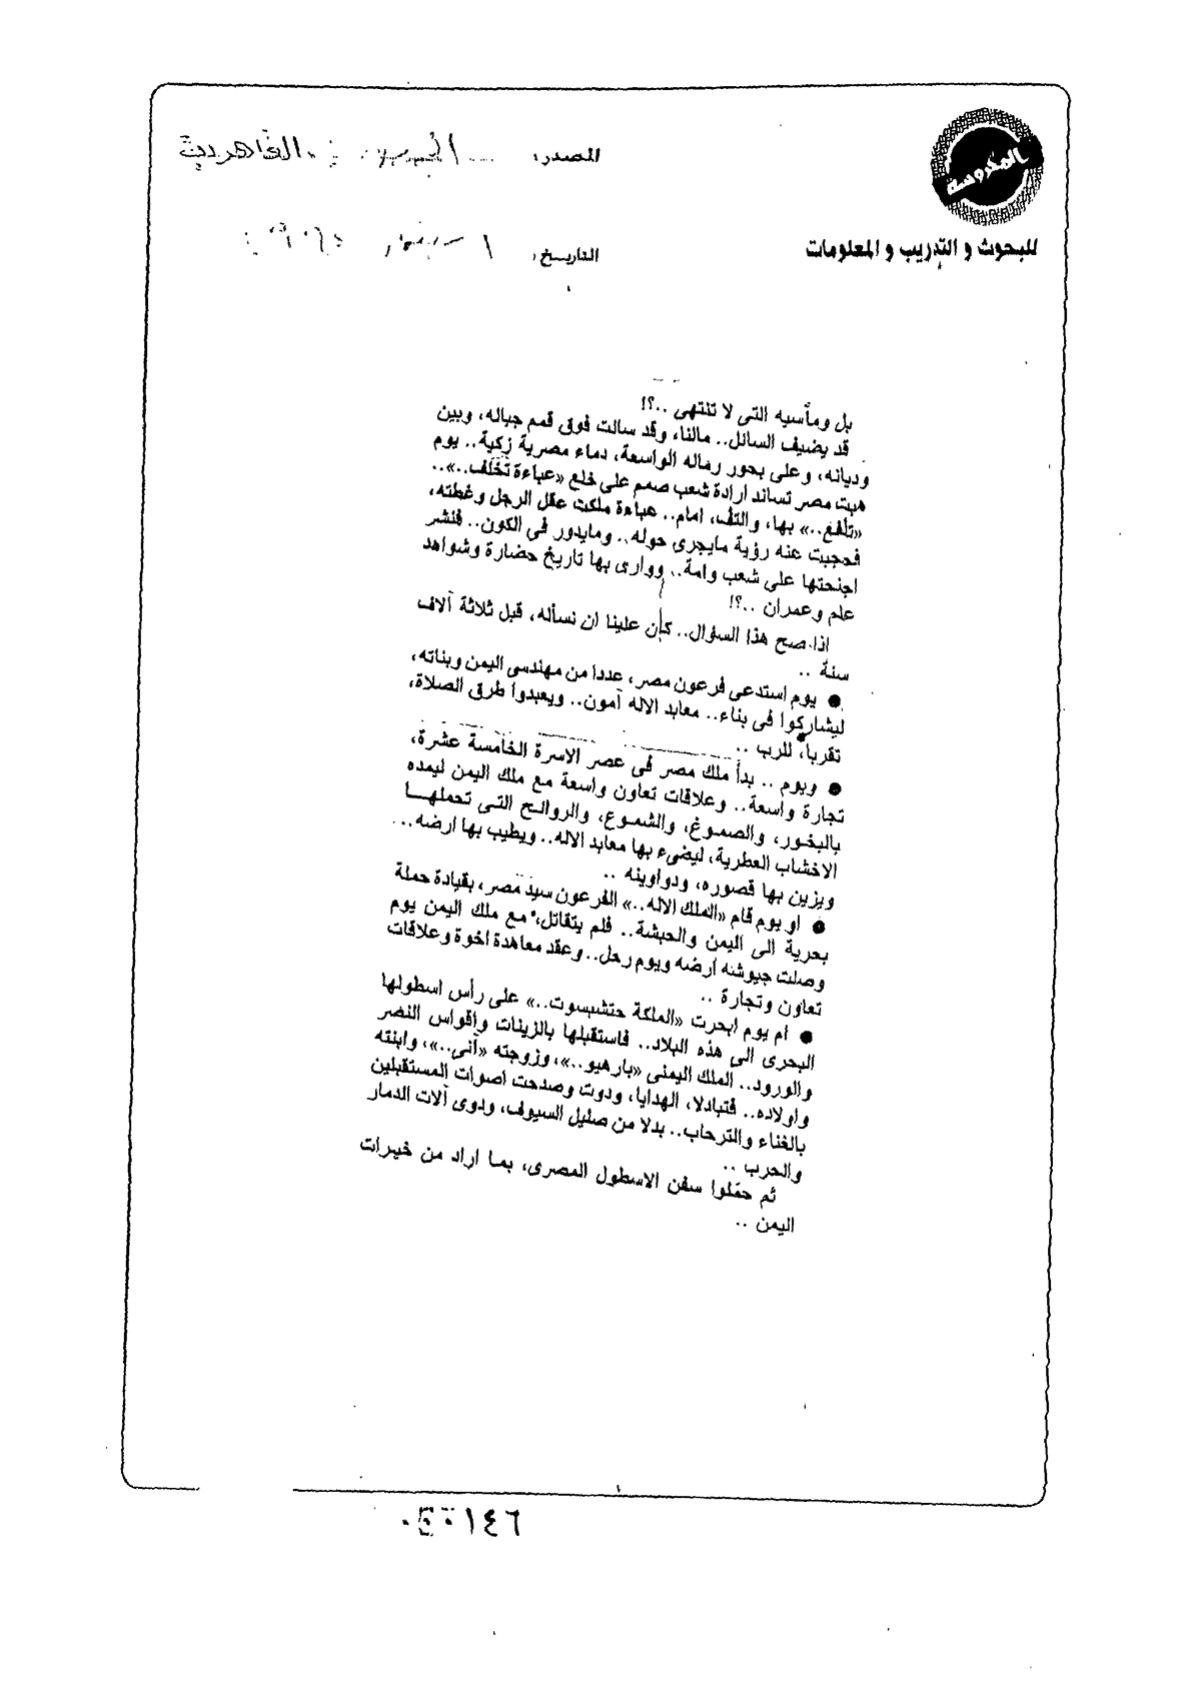 المحروسة
للبحوث و التدريب و المعلومات
المصدر: القاهرية
التاريخ: ١ سبتمبر
بل ومأسيه التى لا تنتهى ..؟!
قد يضيف السائل.. مالنا، وقد سالت فوق قمم جباله، وبين
وديانه، وعلى بحور رماله الواسعة، دماء مصرية زكية.. يوم
هبت مصر تساند ارادة شعب صمم على خلع «عباءة تخلف..»..
«تلفع..» بها، والتف، امام.. عباءة ملكت عقل الرجل وغطته،
فحجبت عنه رؤية مايجرى حوله.. ومايدور فى الكون.. فنشر
اجنحتها على شعب وامة.. ووارى بها تاريخ حضارة وشواهد
علم وعمران ..؟!
اذا صح هذا السؤال.. كان علينا ان نسأله، قبل ثلاثة آلاف
سنة ..
● يوم استدعى فرعون مصر، عددا من مهندسى اليمن وبناته،
ليشاركوا فى بناء.. معابد الاله آمون.. ويعبدوا طرق الصلاة،
تقربا، للرب ..
● ويوم .. بدأ ملك مصر فى عصر الاسرة الخامسة عشرة،
تجارة واسعة.. وعلاقات تعاون واسعة مع ملك اليمن ليمده
بالبخور، والصموغ، والشموع، والروائح التى تحملها
الاخشاب العطرية، ليضىء بها معابد الاله.. ويطيب بها ارضه..
ويزين بها قصوره، ودواوينه ..
● او يوم قام «الملك الاله..» الفرعون سيد مصر، بقيادة حملة
بحرية الى اليمن والحبشة.. فلم يتقاتل، مع ملك اليمن يوم
وصلت جيوشه ارضه ويوم رحل.. وعقد معاهدة اخوة وعلاقات
تعاون وتجارة ..
● ام يوم ابحرت «الملكة حتشبسوت..» على رأس اسطولها
البحرى الى هذه البلاد.. فاستقبلها بالزينات واقواس النصر
والورود.. الملك اليمنى «بارهيو..»، وزوجته «آنى..»، وابنته
واولاده.. فتبادلا، الهدايا، ودوت وصدحت اصوات المستقبلين
بالغناء والترحاب.. بدلا من صليل السيوف، ودوى آلات الدمار
والحرب ..
ثم حملوا سفن الاسطول المصرى، بما اراد من خيرات
اليمن ..